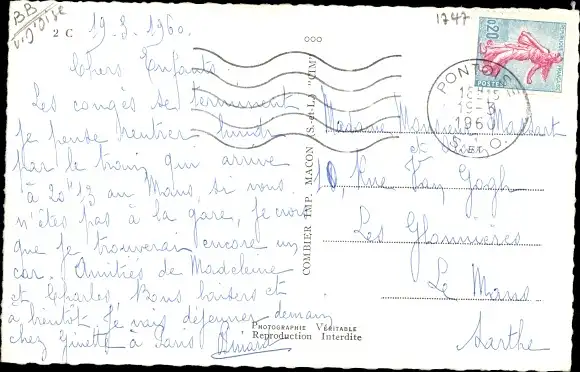 BB
2 C
19.8.1960.
Chers Enfants.
Les congés se terminent
je pense rentrer lundi
par le train qui arrive
à 20h13 au Mans, si vous
n'êtes pas à la gare, je crois
que je trouverai encore un
car. Amitiés de Madeleine
et Charles, Bons baisers et
à bientôt. Je vais déjeuner demain
chez Ginette à
COMBIER IMP. MACON (S.-et-L.) "CIM"
PHOTOGRAPHIE VÉRITABLE
Reproduction Interdite
1747
0,20
POSTES
PONTOISE
1960
S. & O.
Madame Monsieur
10, Rue Van Gogh
Les Glonnières
Le Mans
Sarthe